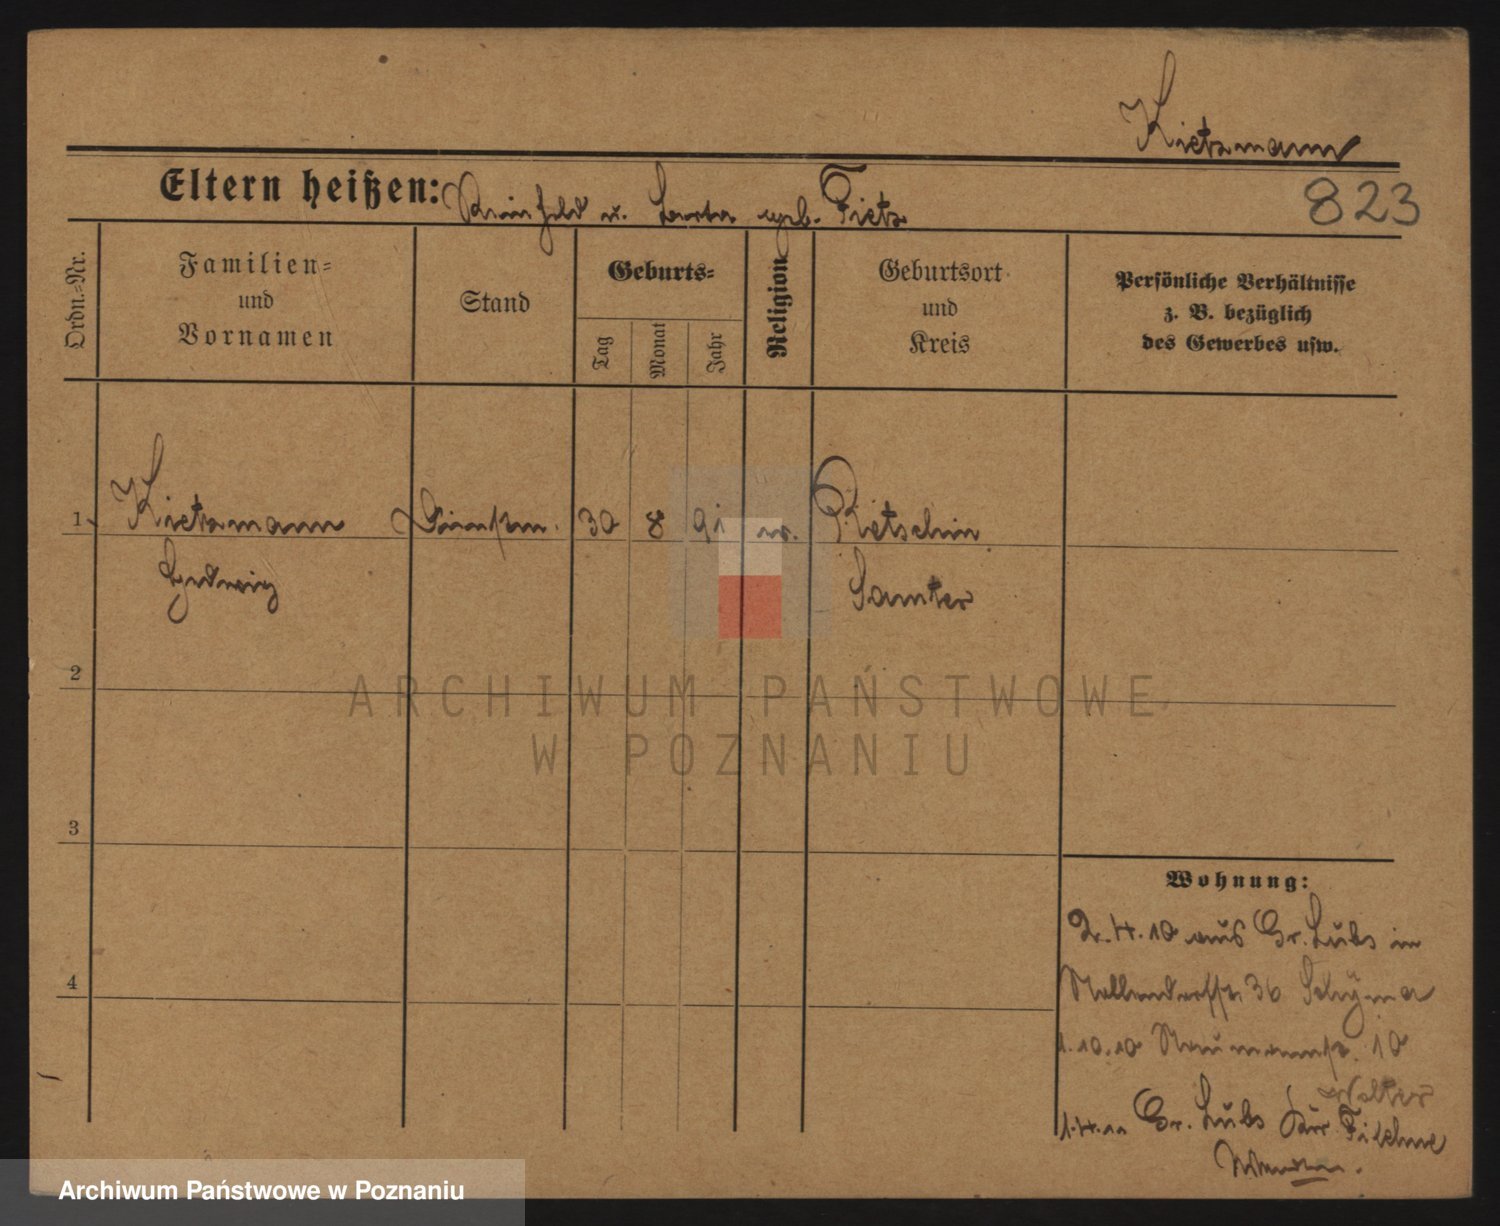 Kietzmann
Eltern heißen: Reinhold u. Berta geb. Tietz
823
Ordn.-Nr.
Familien-
und
Vornamen
Stand
Geburts-
Tag
Monat
Jahr
Religion
Geburtsort
und
Kreis
Persönliche Verhältnisse
z. B. bezüglich
des Gewerbes usw.
1 Kietzmann 30 8 91 ev.
Hedwig Samter
2
ARCHIWUM PAŃSTWOWE
W POZNANIU
3
4
Wohnung:
2.4.10 aus Gr. Lubs in
Nollendorffstr. 36
1.10.10 Naumannstr. 10
Walter
1.4.11 Gr. Lubs Kr. Filehne
Archiwum Państwowe w Poznaniu